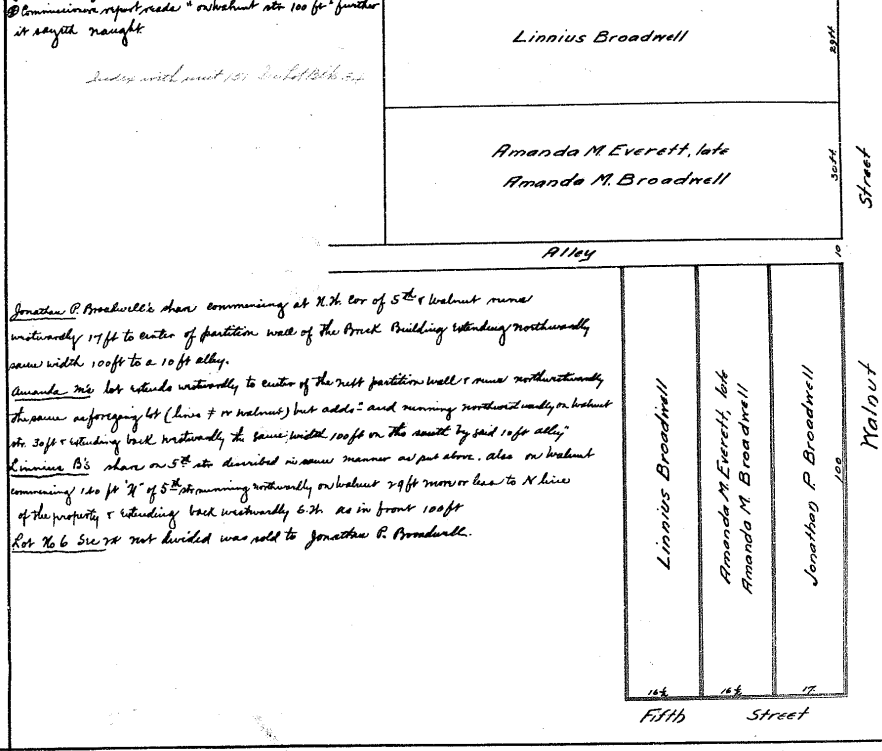 Commissioners report reads "on Walnut str 100 ft" further
it sayeth naught.
Index with unit 151
Linnius Broadwell
29 ft
Amanda M. Everett, late
Amanda M. Broadwell
30 ft
Street
Alley
10
Jonathan P. Broadwell's share commencing at N.W. Cor of 5th & Walnut runs
westwardly 17 ft to center of partition wall of the Brick Building extending northwardly
same width 100 ft to a 10 ft alley.
Amanda M's lot extends westwardly to center of the next partition wall & runs northwestwardly
the same as foregoing lot (lines # or Walnut) but adds "and running northwardly on Walnut
str. 30 ft & extending back westwardly the same width 100 ft on the south by said 10 ft alley"
Linnius B's share on 5th str described in same manner as put above. also on Walnut
commencing 140 ft "N" of 5th str running northwardly on Walnut 29 ft more or less to N line
of the property & extending back westwardly S.W. as in front 100 ft
Lot No 6 Sec not divided was sold to Jonathan P. Broadwell.
Linnius Broadwell
Amanda M. Everett, late
Amanda M. Broadwell
Jonathan P. Broadwell
100
Walnut
16½
16½
17.
Fifth Street